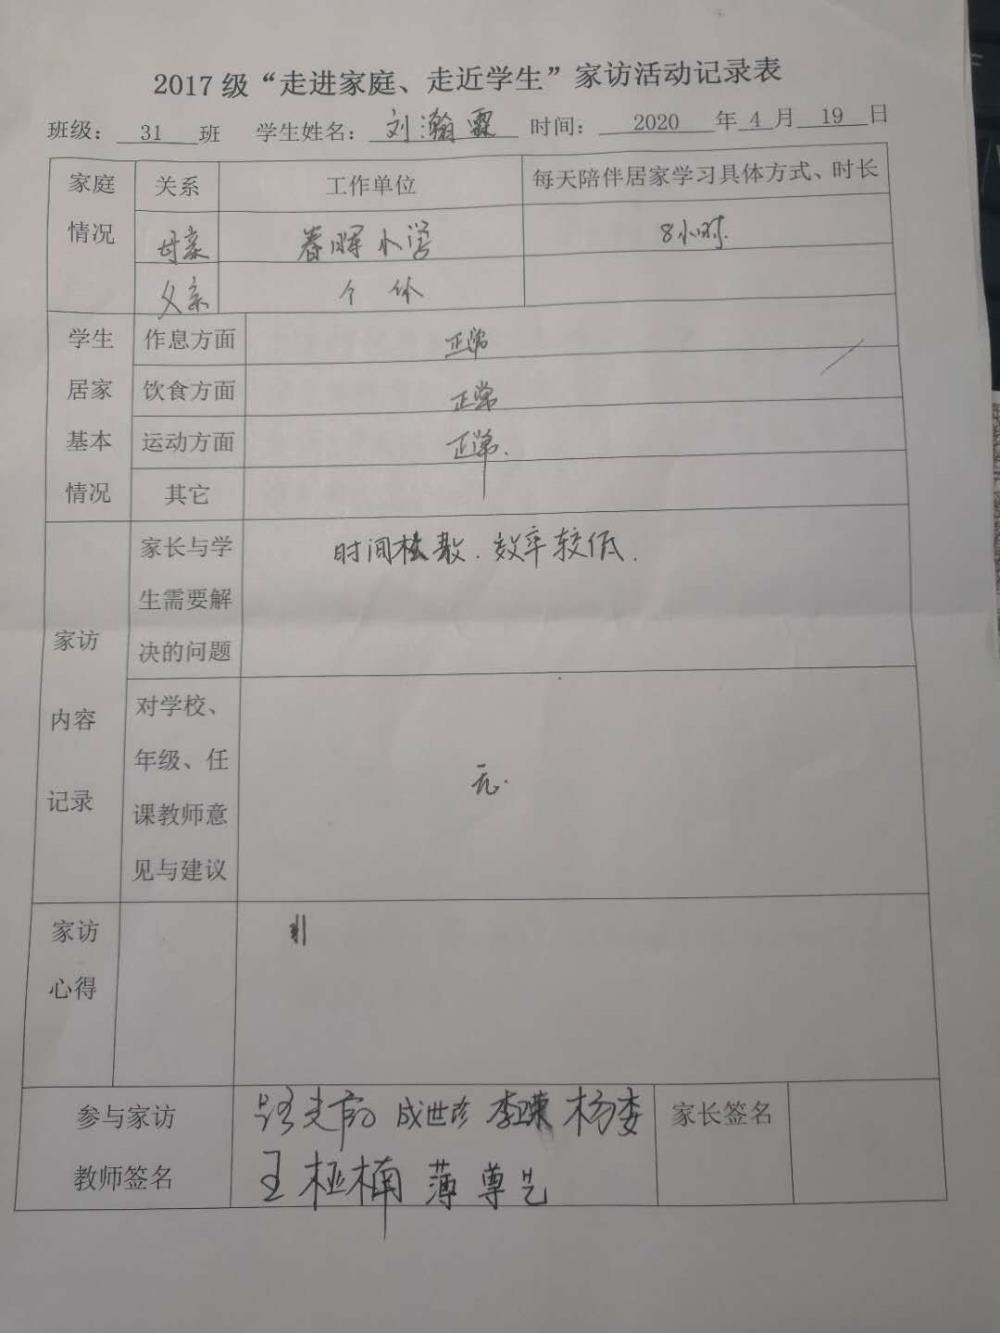 2017级“走进家庭、走近学生”家访活动记录表
班级: 31 班 学生姓名: 刘瀚霖 时间: 2020 年 4 月 19 日
家庭情况 关系 工作单位 每天陪伴居家学习具体方式、时长
母亲 春晖小学 8小时.
父亲 个体
学生居家基本情况 作息方面 正常
饮食方面 正常
运动方面 正常.
其它
家访内容记录 家长与学生需要解决的问题 时间松散.效率较低.
对学校、年级、任课教师意见与建议 无.
家访心得
参与家访教师签名 成世珍 李 杨委 家长签名
王桠楠 薄尊艺